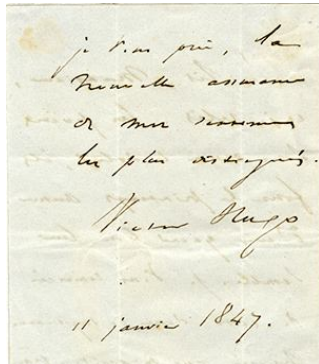 je vous prie, la
nouvelle assurance
de mes sentiments
les plus distingués.
Victor Hugo
11 janvier 1847.